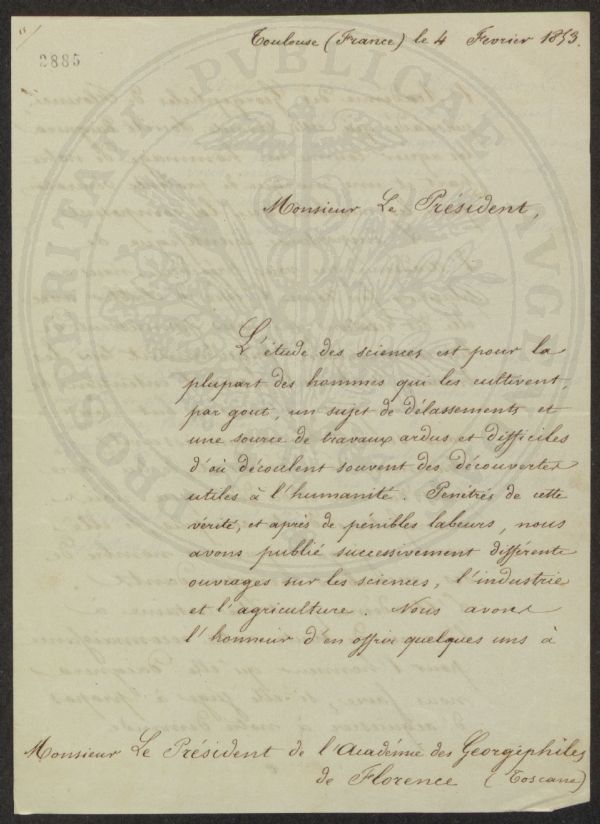 11
2885
Toulouse (France) le 4 Fevrier 1853.
PROSPERITATI PVBLICAE AVGENDAE
Monsieur Le Président,
L'étude des sciences est pour la
plupart des hommes qui les cultivent,
par gout, un sujet de délassements et
une source de travaux ardus et difficiles
d'où découlent souvent des découvertes
utiles à l'humanité. Penétrés de cette
vérité, et après de pénibles labeurs, nous
avons publié successivement différents
ouvrages sur les sciences, l'industrie
et l'agriculture. Nous avons
l'honneur d'en offrir quelques uns à
Monsieur Le Président de l'Académie des Georgephiles
de Florence (Toscane)